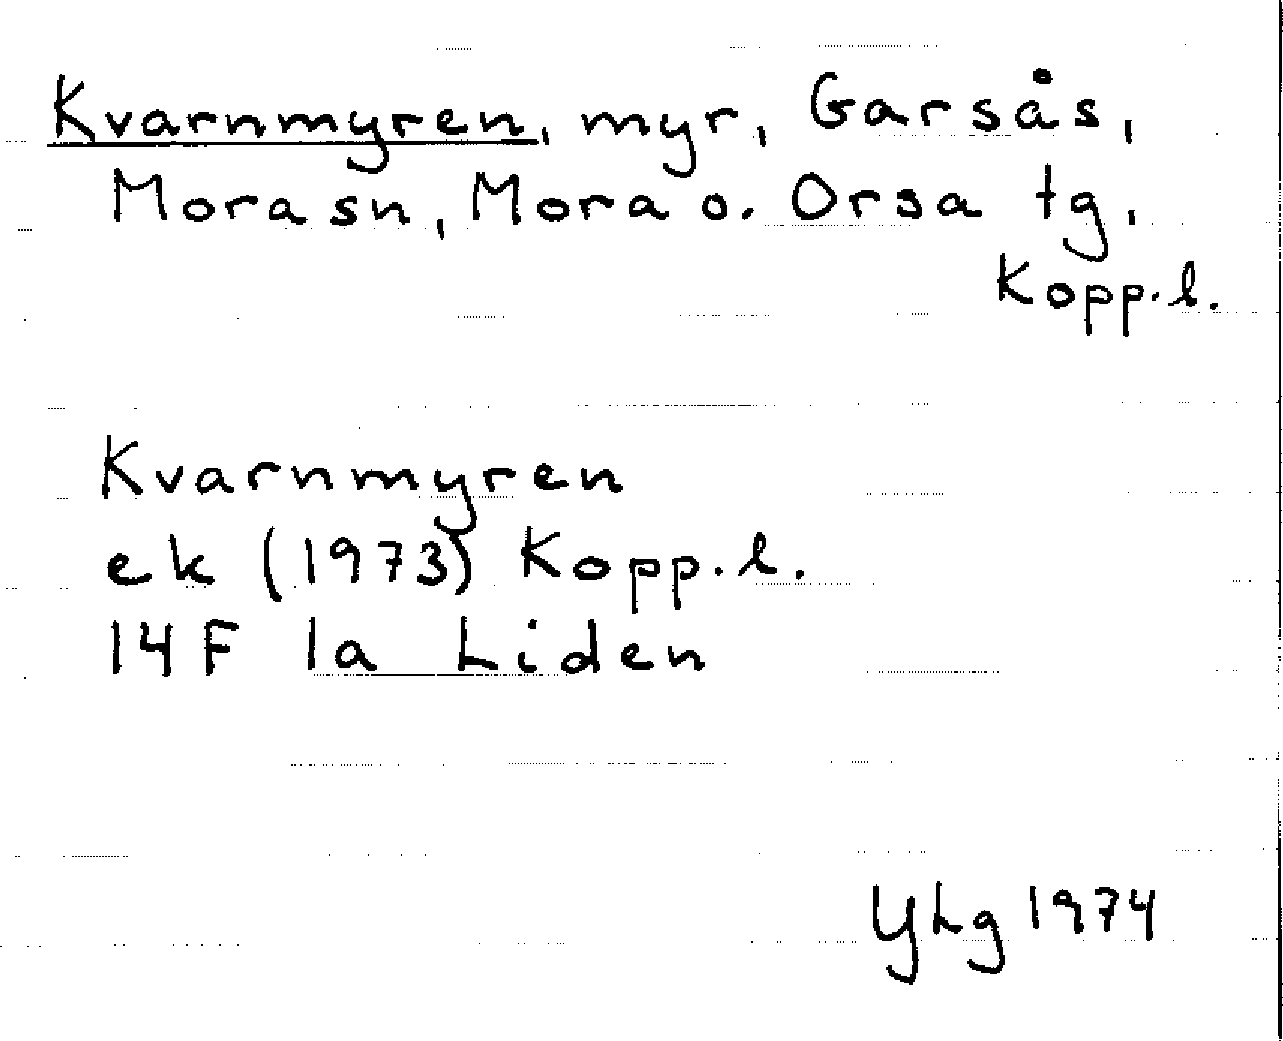 Kvarnmyren, myr, Garsås,
Mora sn, Mora o. Orsa tg,
Kopp.l.
Kvarnmyren
ek (1973) Kopp.l.
14F 1a Liden
YLg 1974